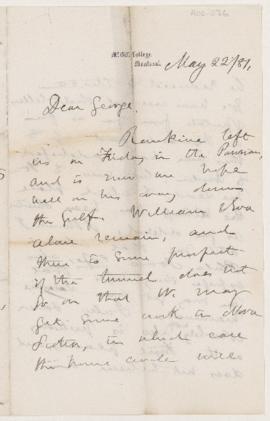 McGill College,
Montreal.
May 22/81,
Dear George,
Rankine left
us on Friday in the Parisian,
and is now we hope
well on his way down
the Gulf. William & Eva
alone remain, and
there is some prospect
if the tunnel does not
go on that W. may
get some work in Nova
Scotia, in which case
the home circle will